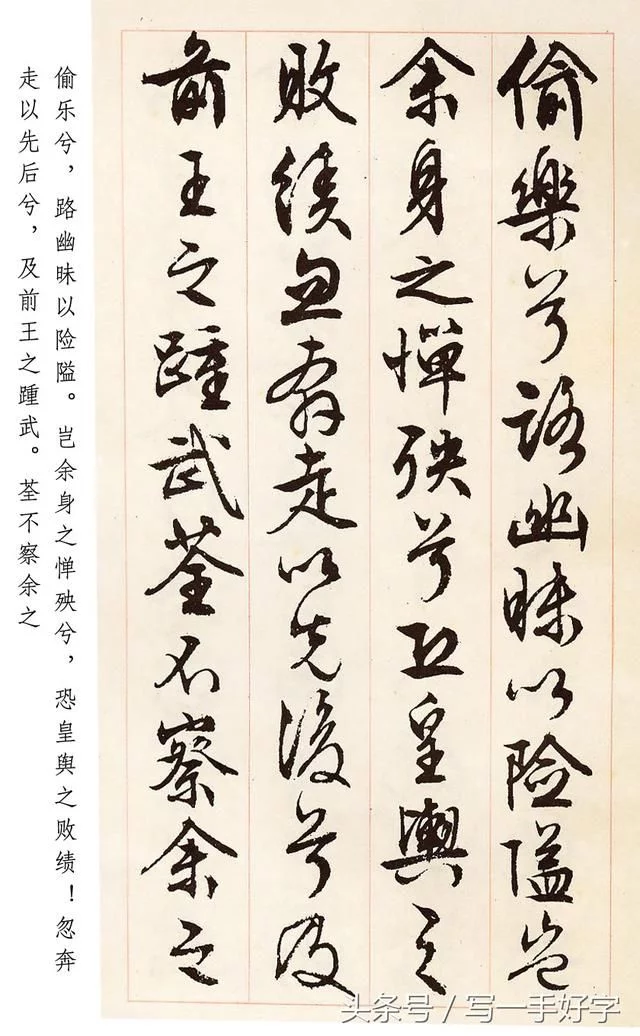 偷樂兮路幽昧以險隘豈
余身之憚殃兮恐皇輿之
敗績忽奔走以先後兮及
前王之踵武荃不察余之
偷乐兮，路幽昧以险隘。岂余身之惮殃兮，恐皇舆之败绩！忽奔
走以先后兮，及前王之踵武。荃不察余之
头条号／写一手好字